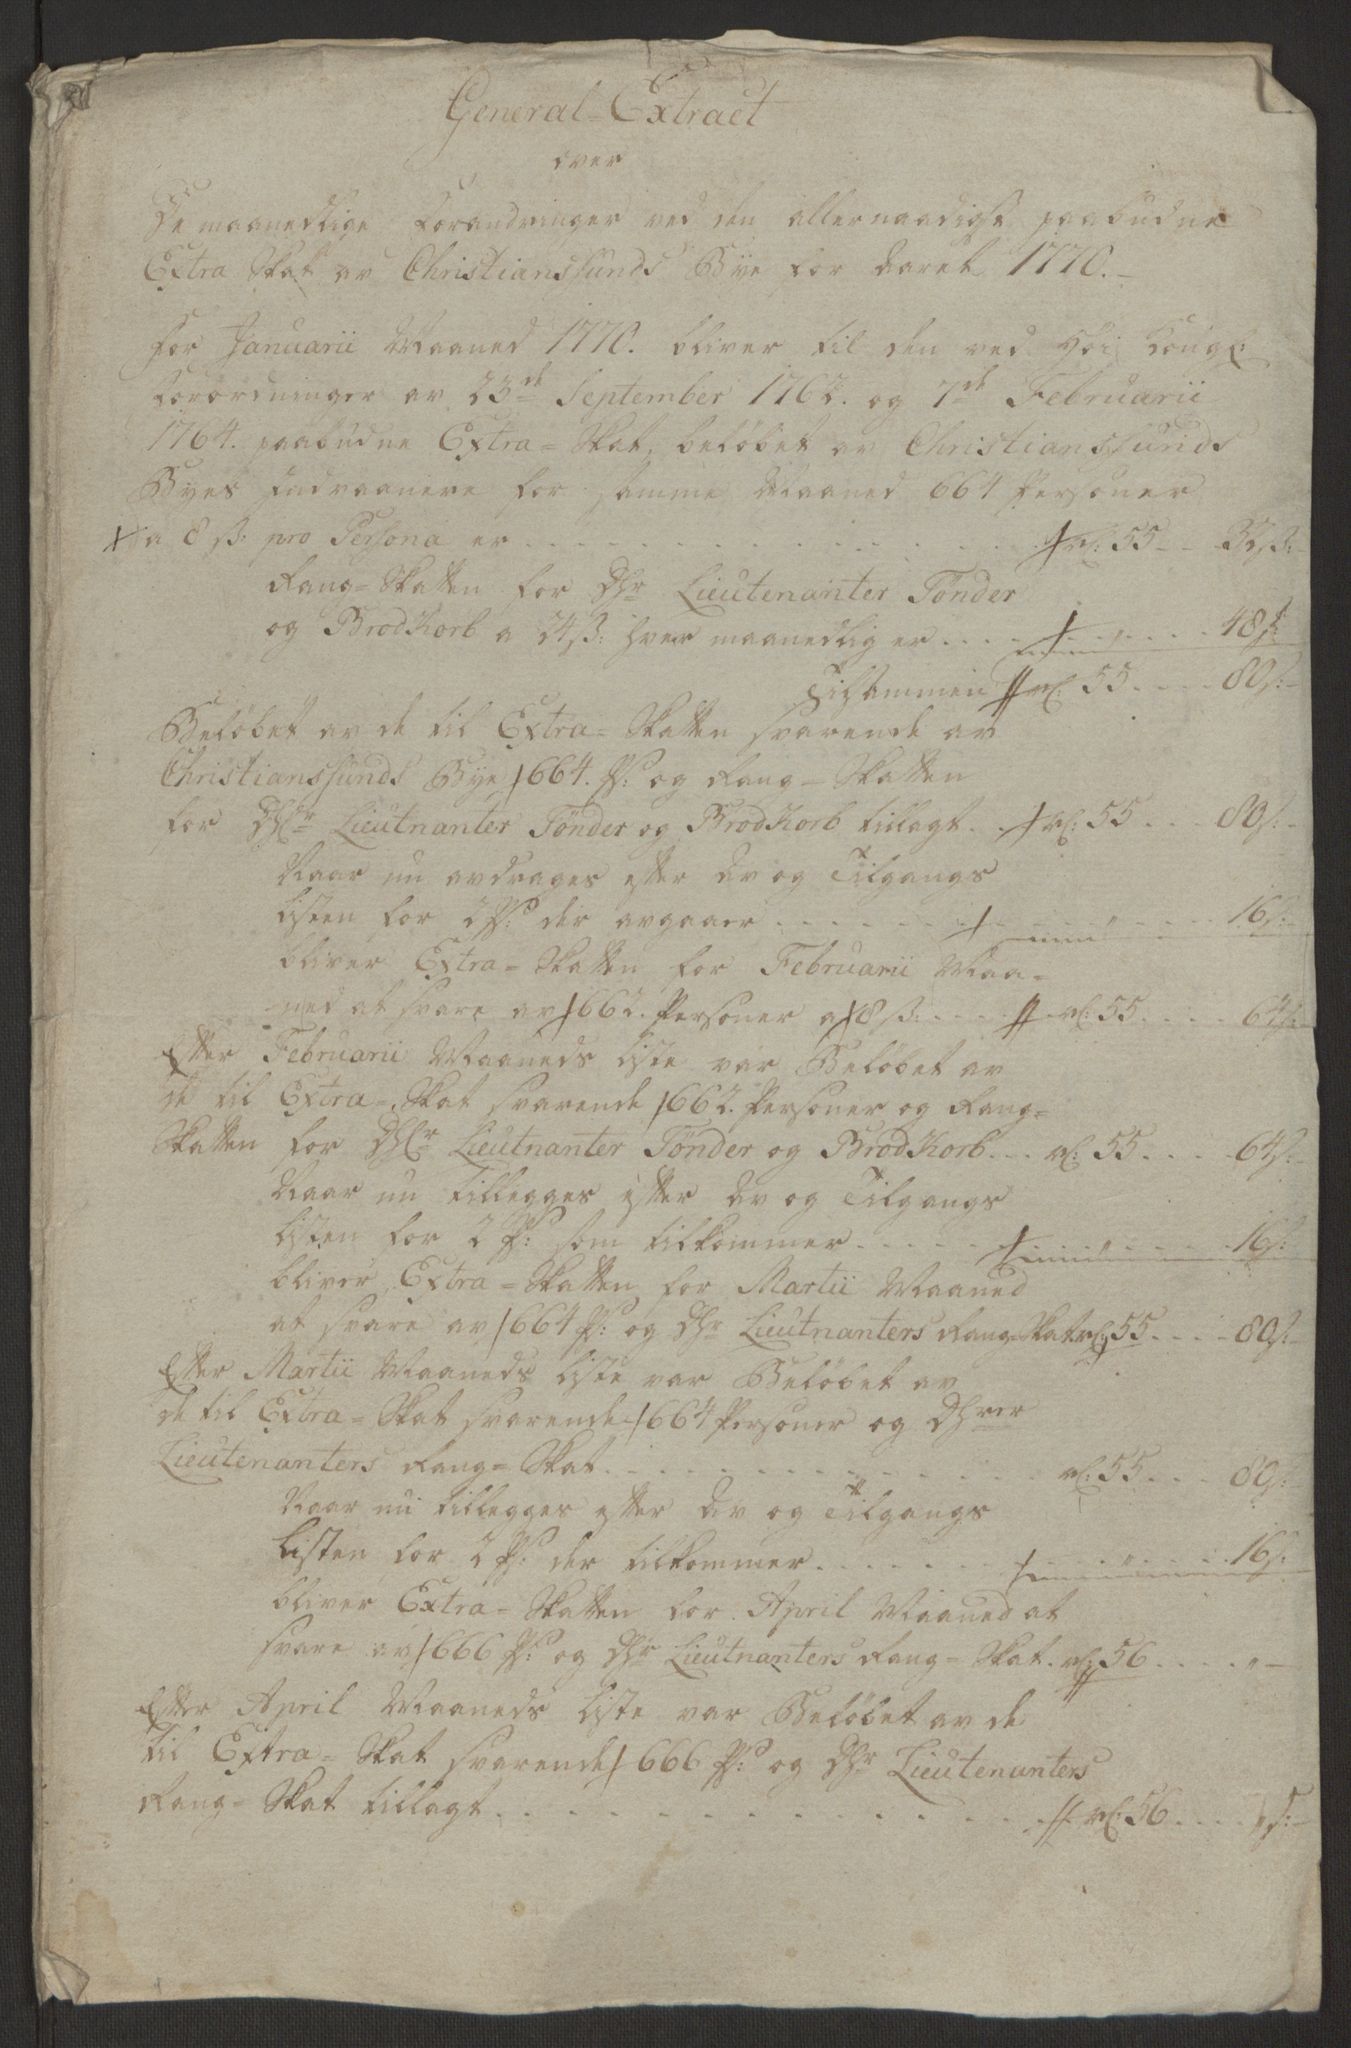 General-Extract
over
De maanedlige Forandringer ved den allernaadigst paabudne
Extra Skat av Christianssunds Bye for Aaret 1770.
For Januarii Maaned 1770. bliver til den ved Høi Kongl:
Forordninger av 23de September 1762. og 7de Februarii
1764. paabudne Extra-Skat, beløbet av Christianssunds
Byes Indvaanere for samme Maaned 664 Personer
a 8 ß: pro Persona er . . . . . . rd: 55 - - 32 ß:
Rang-Skatten for Dhr Lieutenanter Tønder
og BrodKorb a 24 ß: hver maanedlig er . . . . 48 ß
Tilsammen rd: 55 . . . . 80 ß:
Beløbet av de til Extra-Skatten svarende av
Christianssunds Bye 664. Ps: og Rang-Skatten
for Dhr Lieutnanter Tønder og BrodKorb tillagt . . rd: 55 . . . 80 ß:
Naar nu avdrages efter Av og Tilgangs
Listen for 2 Ps: der avgaaer . . . . . . " . . . . 16 ß:
bliver Extra-Skatten for Februarii Maa-
ned at svare av 662. Personer a 8 ß: . . . . rd: 55 . . . . 64 ß:
Efter Februarii Maaneds Liste var Beløbet av
de til Extra-Skat svarende 662. Personer og Rang-
Skatten for Dhr Lieutnanter Tønder og BrodKorb . . . rd: 55 . . . . 64 ß:
Naar nu tillegges efter Av og Tilgangs
Listen for 2 Ps: som tilkommer . . . . . " . . . . 16 ß:
bliver Extra-Skatten for Martii Maaned
at svare av 664 Ps: og Dhr Lieutnanters Rang-Skat rd: 55 . . . . 80 ß:
Efter Martii Maaneds Liste var Beløbet av
de til Extra-Skat svarende 664 Personer og Dhrer
Lieutenanters Rang-Skat . . . . . . rd: 55 . . . 80 ß:
Naar nu tillegges efter Av og Tilgangs
Listen for 2 Ps: der tilkommer . . . . . . " . . . . 16 ß:
bliver Extra-Skatten for April Maaned at
svare av 666 Ps: og Dhr Lieutnanters Rang-Skat . rd: 56 . . . . "
Efter April Maaneds Liste var Beløbet av de
til Extra-Skat svarende 666 Ps: og Dhr Lieutenanters
Rang-Skat tillagt . . . . . . rd: 56 . . . . " ß: